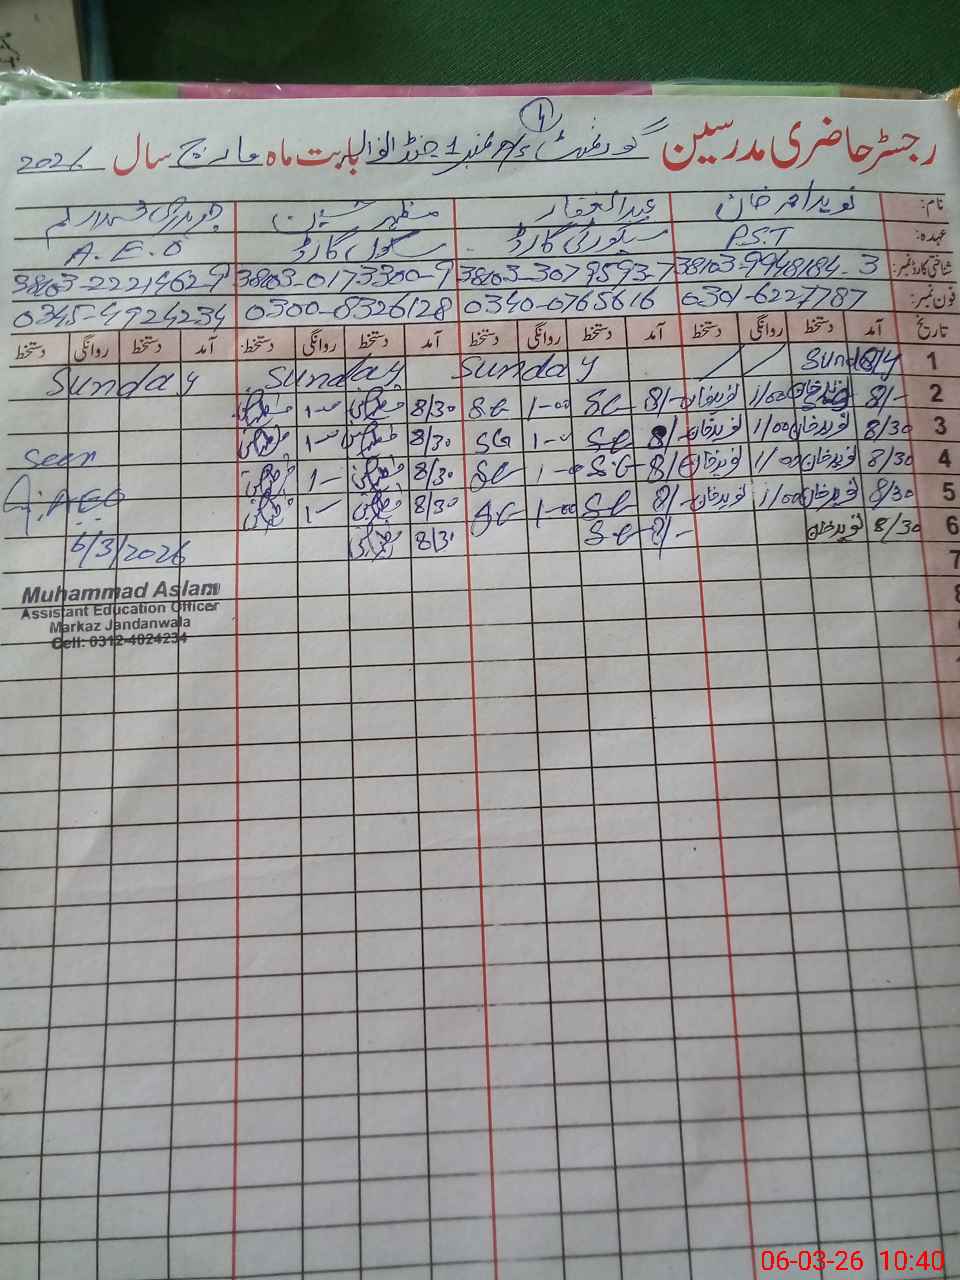 رجسٹر حاضری مدرسین گورنمنٹ بابت ماہ مارچ سال 2026
نام: نوید احمد خان عبدالغفار مظہر حسین
عہدہ: P.S.T سیکورٹی گارڈ سکول گارڈ A.E.O
شناختی کارڈ نمبر: 38103-9948184-3 38103-3079593-7 38103-0173300-9 38103-2221462-9
فون نمبر: 0301-6227787 0340-0765616 0300-8326128 0345-4924234
تاریخ آمد دستخط روانگی دستخط آمد دستخط روانگی دستخط آمد دستخط روانگی دستخط آمد دستخط روانگی دستخط
1 Sunday Sunday Sunday Sunday
2 8/- 1/00 نوید خان 8/- SG 1-00 SG 8/30 1-
3 8/30 نوید خان 1/00 نوید خان 8/- SG 1- SG 8/30 1-
4 8/30 نوید خان 1/00 نوید خان 8/- SG 1-00 SG 8/30 1- Seen
5 8/30 نوید خان 1/00 نوید خان 8/- SG 1-00 SG 8/30 1- AEO
6 8/30 نوید خان 8/- SG 8/30 6/3/2026
7
Muhammad Aslam
Assistant Education Officer
Markaz Jandanwala
Cell: 0312-4824234
06-03-26 10:40